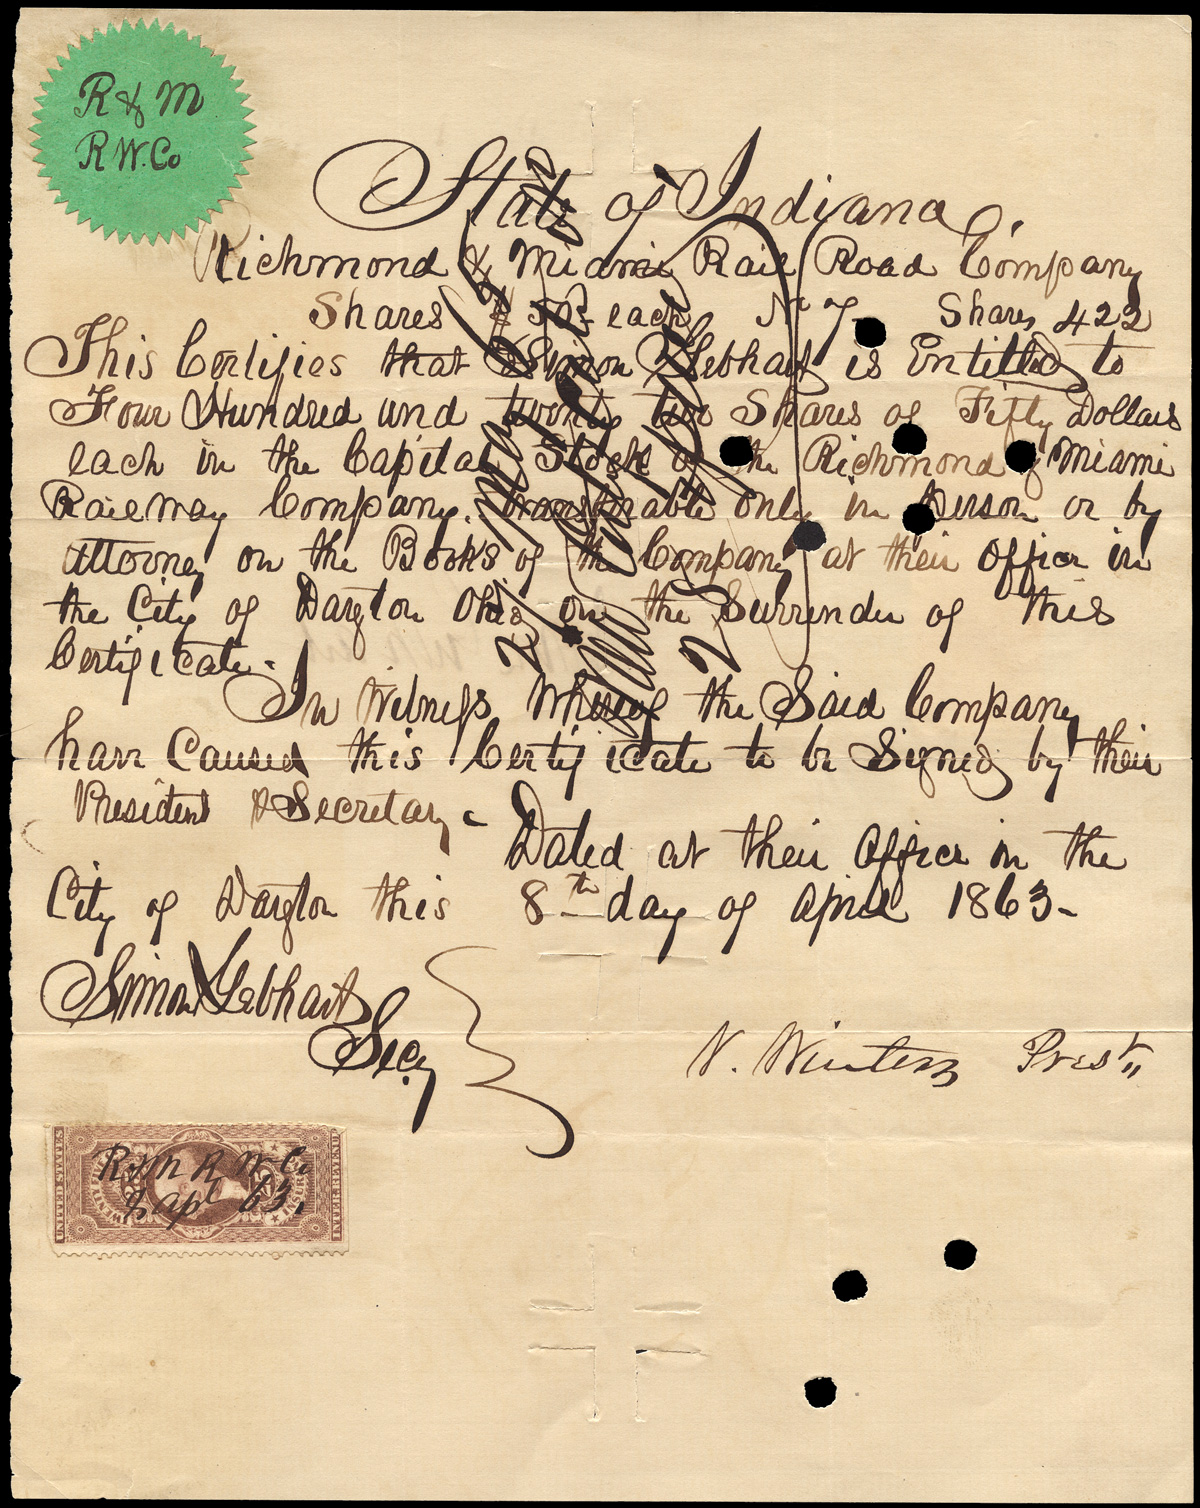 R & M
R W. Co
State of Indiana.
Richmond & Miami Rail Road Company
Shares $50 - each No 7 Shares 422
This Certifies that Simon Gebhart is Entitled to
Four Hundred and twenty two Shares of Fifty Dollars
each in the Capital Stock of the Richmond & Miami
Railway Company. transferable only in Person or by
attorney on the Books of the Company at their Office in
the City of Dayton Ohio on the Surrender of this
Certificate -
In Witness Whereof the Said Company
have Caused this Certificate to be Signed by their
President & Secretary -
Dated at their Office in the
City of Dayton this 8th day of April 1863 -
Simon Gebhart
Secy
N. Winters Prest,,
UNITED STATES
INTER. REVENUE
TWENTY FIVE
INSURANCE
R & M R W Co
8 Apl 63.